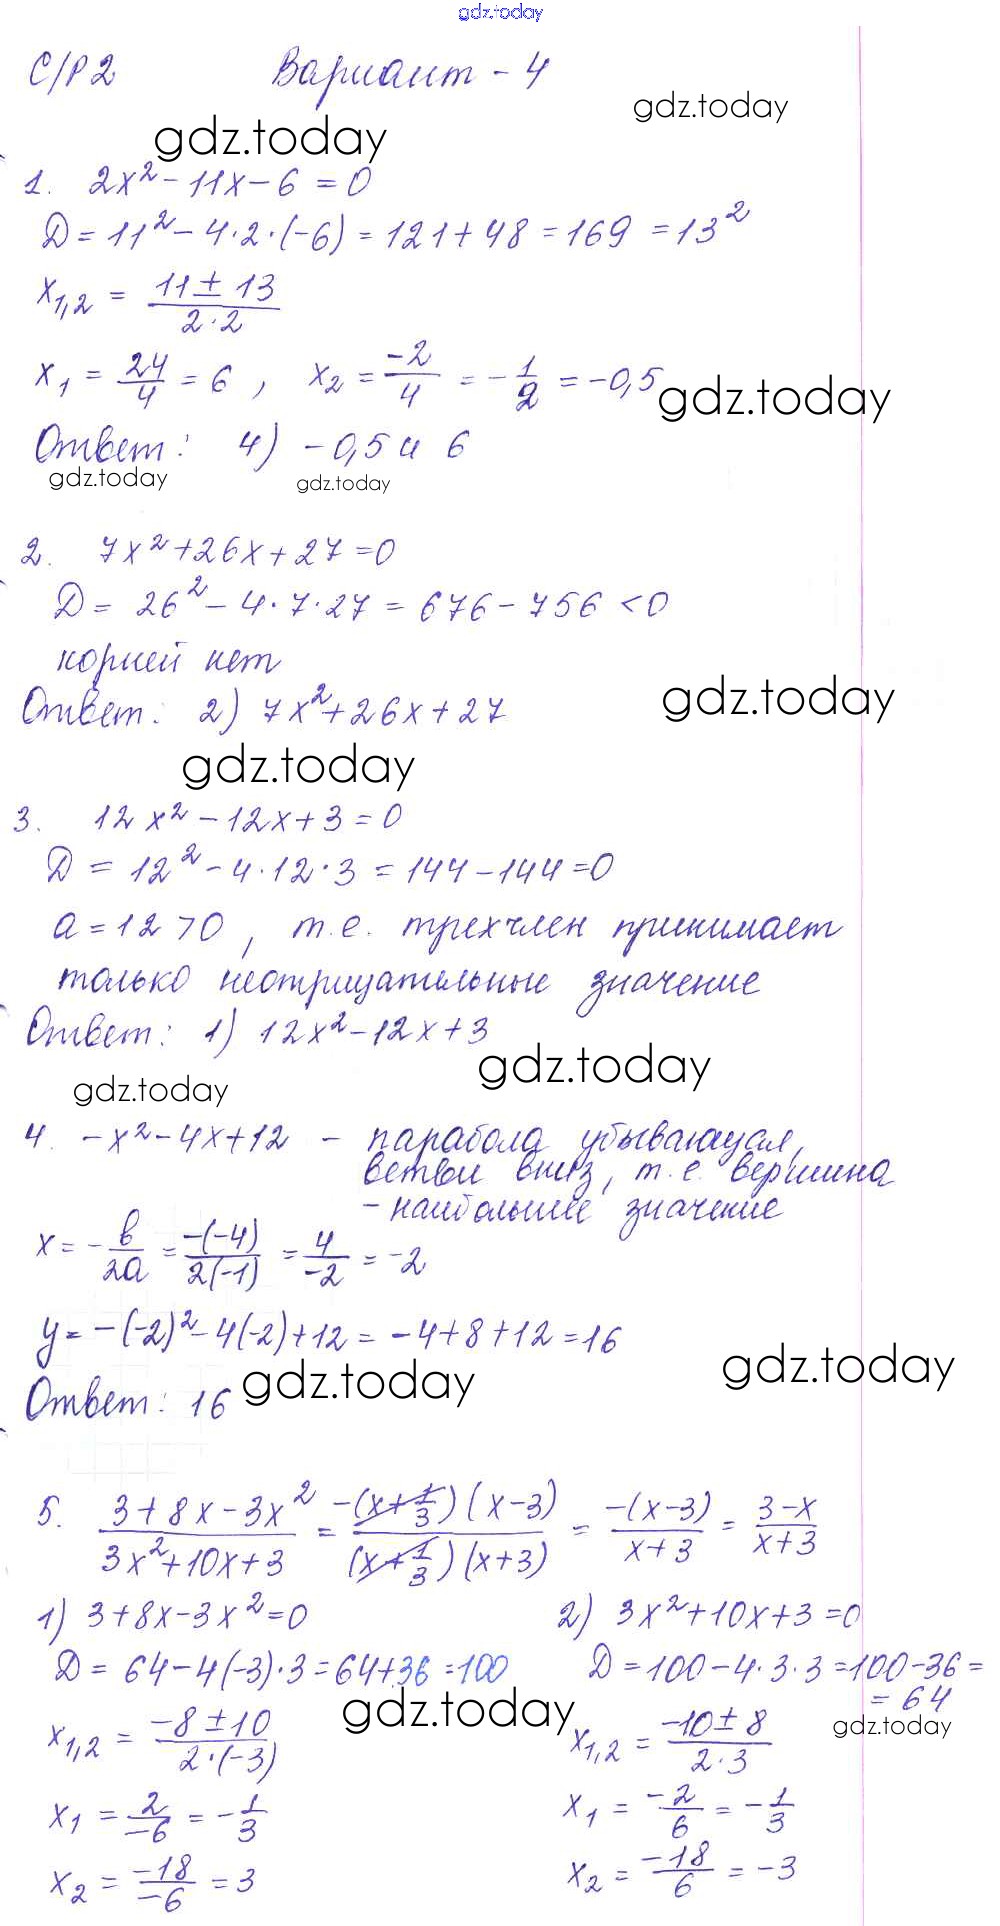 gdz.today
С/Р 2 Вариант - 4
gdz.today
gdz.today
1. 2x² - 11x - 6 = 0
D = 11² - 4·2·(-6) = 121 + 48 = 169 = 13²
x₁,₂ = (11 ± 13)/(2·2)
x₁ = 24/4 = 6 , x₂ = -2/4 = -1/2 = -0,5
gdz.today
Ответ: 4) -0,5 и 6
gdz.today gdz.today
2. 7x² + 26x + 27 = 0
D = 26² - 4·7·27 = 676 - 756 < 0
корней нет
Ответ: 2) 7x² + 26x + 27
gdz.today
gdz.today
3. 12x² - 12x + 3 = 0
D = 12² - 4·12·3 = 144 - 144 = 0
a = 12 > 0 , т.е. трехчлен принимает
только неотрицательные значение
Ответ: 1) 12x² - 12x + 3
gdz.today
gdz.today
4. -x² - 4x + 12 - парабола убывающая,
ветви вниз, т.е. вершина
- наибольшее значение
x = -b/2a = -(-4)/2(-1) = 4/-2 = -2
y = -(-2)² - 4(-2) + 12 = -4 + 8 + 12 = 16
gdz.today
Ответ: 16
gdz.today
5. (3 + 8x - 3x²)/(3x² + 10x + 3) = -(x + 1/3)(x - 3)/(x + 1/3)(x + 3) = -(x - 3)/(x + 3) = (3 - x)/(x + 3)
1) 3 + 8x - 3x² = 0 2) 3x² + 10x + 3 = 0
D = 64 - 4(-3)·3 = 64 + 36 = 100 D = 100 - 4·3·3 = 100 - 36 =
= 64
gdz.today
gdz.today
x₁,₂ = (-8 ± 10)/(2·(-3)) x₁,₂ = (-10 ± 8)/(2·3)
x₁ = 2/-6 = -1/3 x₁ = -2/6 = -1/3
x₂ = -18/-6 = 3 x₂ = -18/6 = -3